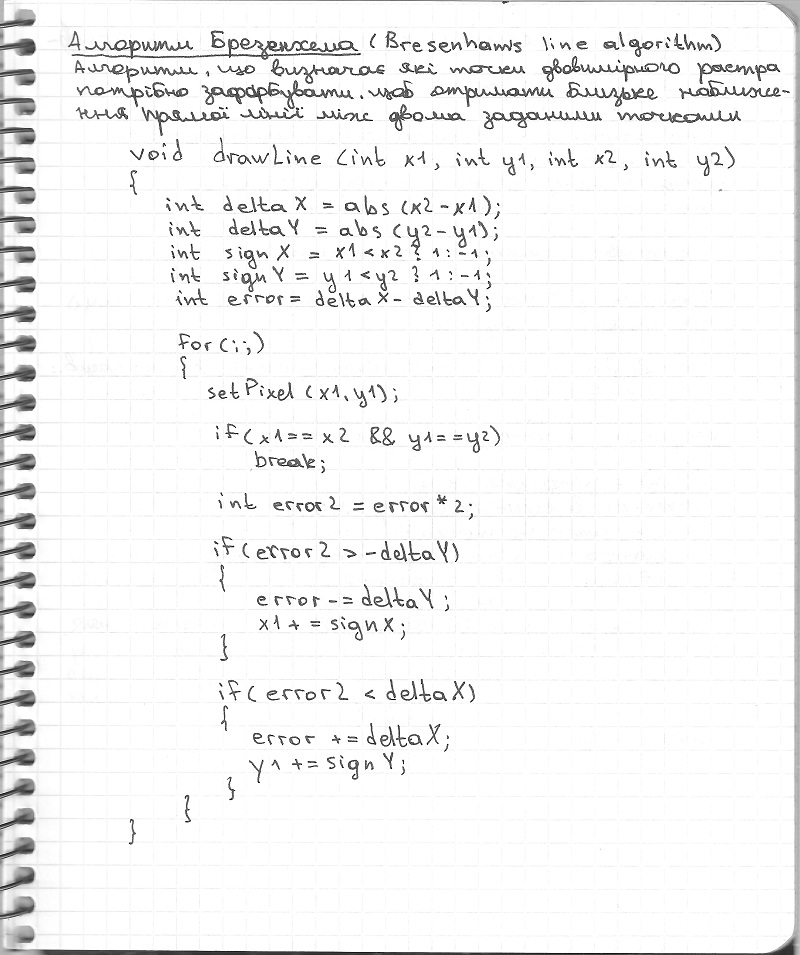 Алгоритм Брезенхема (Bresenham's line algorithm)
Алгоритм, що визначає які точки двовимірного растра
потрібно зафарбувати, щоб отримати близьке наближе-
ння прямої лінії між двома заданими точками
void drawLine (int x1, int y1, int x2, int y2)
{
int deltaX = abs (x2-x1);
int deltaY = abs (y2-y1);
int signX = x1<x2 ? 1:-1;
int signY = y1<y2 ? 1:-1;
int error = deltaX - deltaY;
for(;;)
{
setPixel (x1,y1);
if(x1==x2 && y1==y2)
break;
int error2 = error*2;
if(error2 > -deltaY)
{
error -= deltaY;
x1 += signX;
}
if(error2 < deltaX)
{
error += deltaX;
y1 += signY;
}
}
}